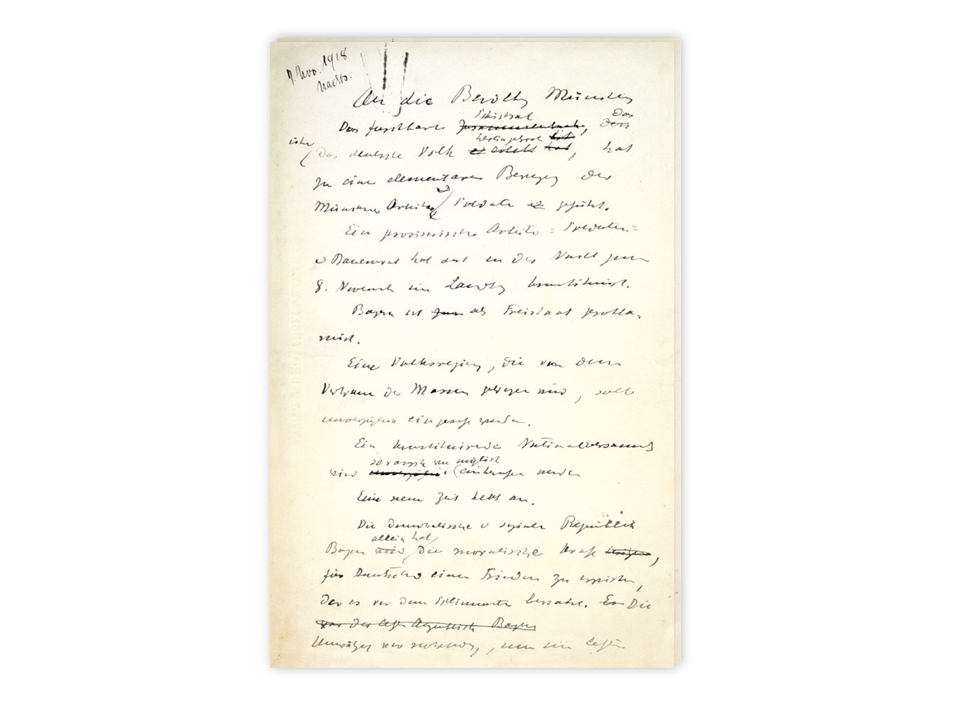 7. Nov. 1918
Nachts.
An die Bevölkg Münchens
Das furchtbare Schicksal, Das
das deutsche Volk hat
zu einer elementaren Bewegg der
Münchner Arbeiter Soldaten geführt.
Ein provisorischer Arbeiter = Soldaten =
u Bauernrat hat sich in der Nacht zum
8. November im Landtg konstituiert.
Bayern ist als Freistaat prokla
miert.
Eine Volksregierg, die von dem
Vertrauen der Massen getragen wird, soll
unverzüglich eingesetzt werden.
Ein konstituirende Nationalversammlg
so rasch wie möglich
wird einberufen werden
Eine neue Zeit hebt an.
Die demokratische u soziale Republik
allein hat
Bayern die moralische Kraft,
für Deutschld einen Frieden zu erwirken,
der es vor dem Schlimmsten bewahrt. Die
Umwälzg war notwendig, um im letzten